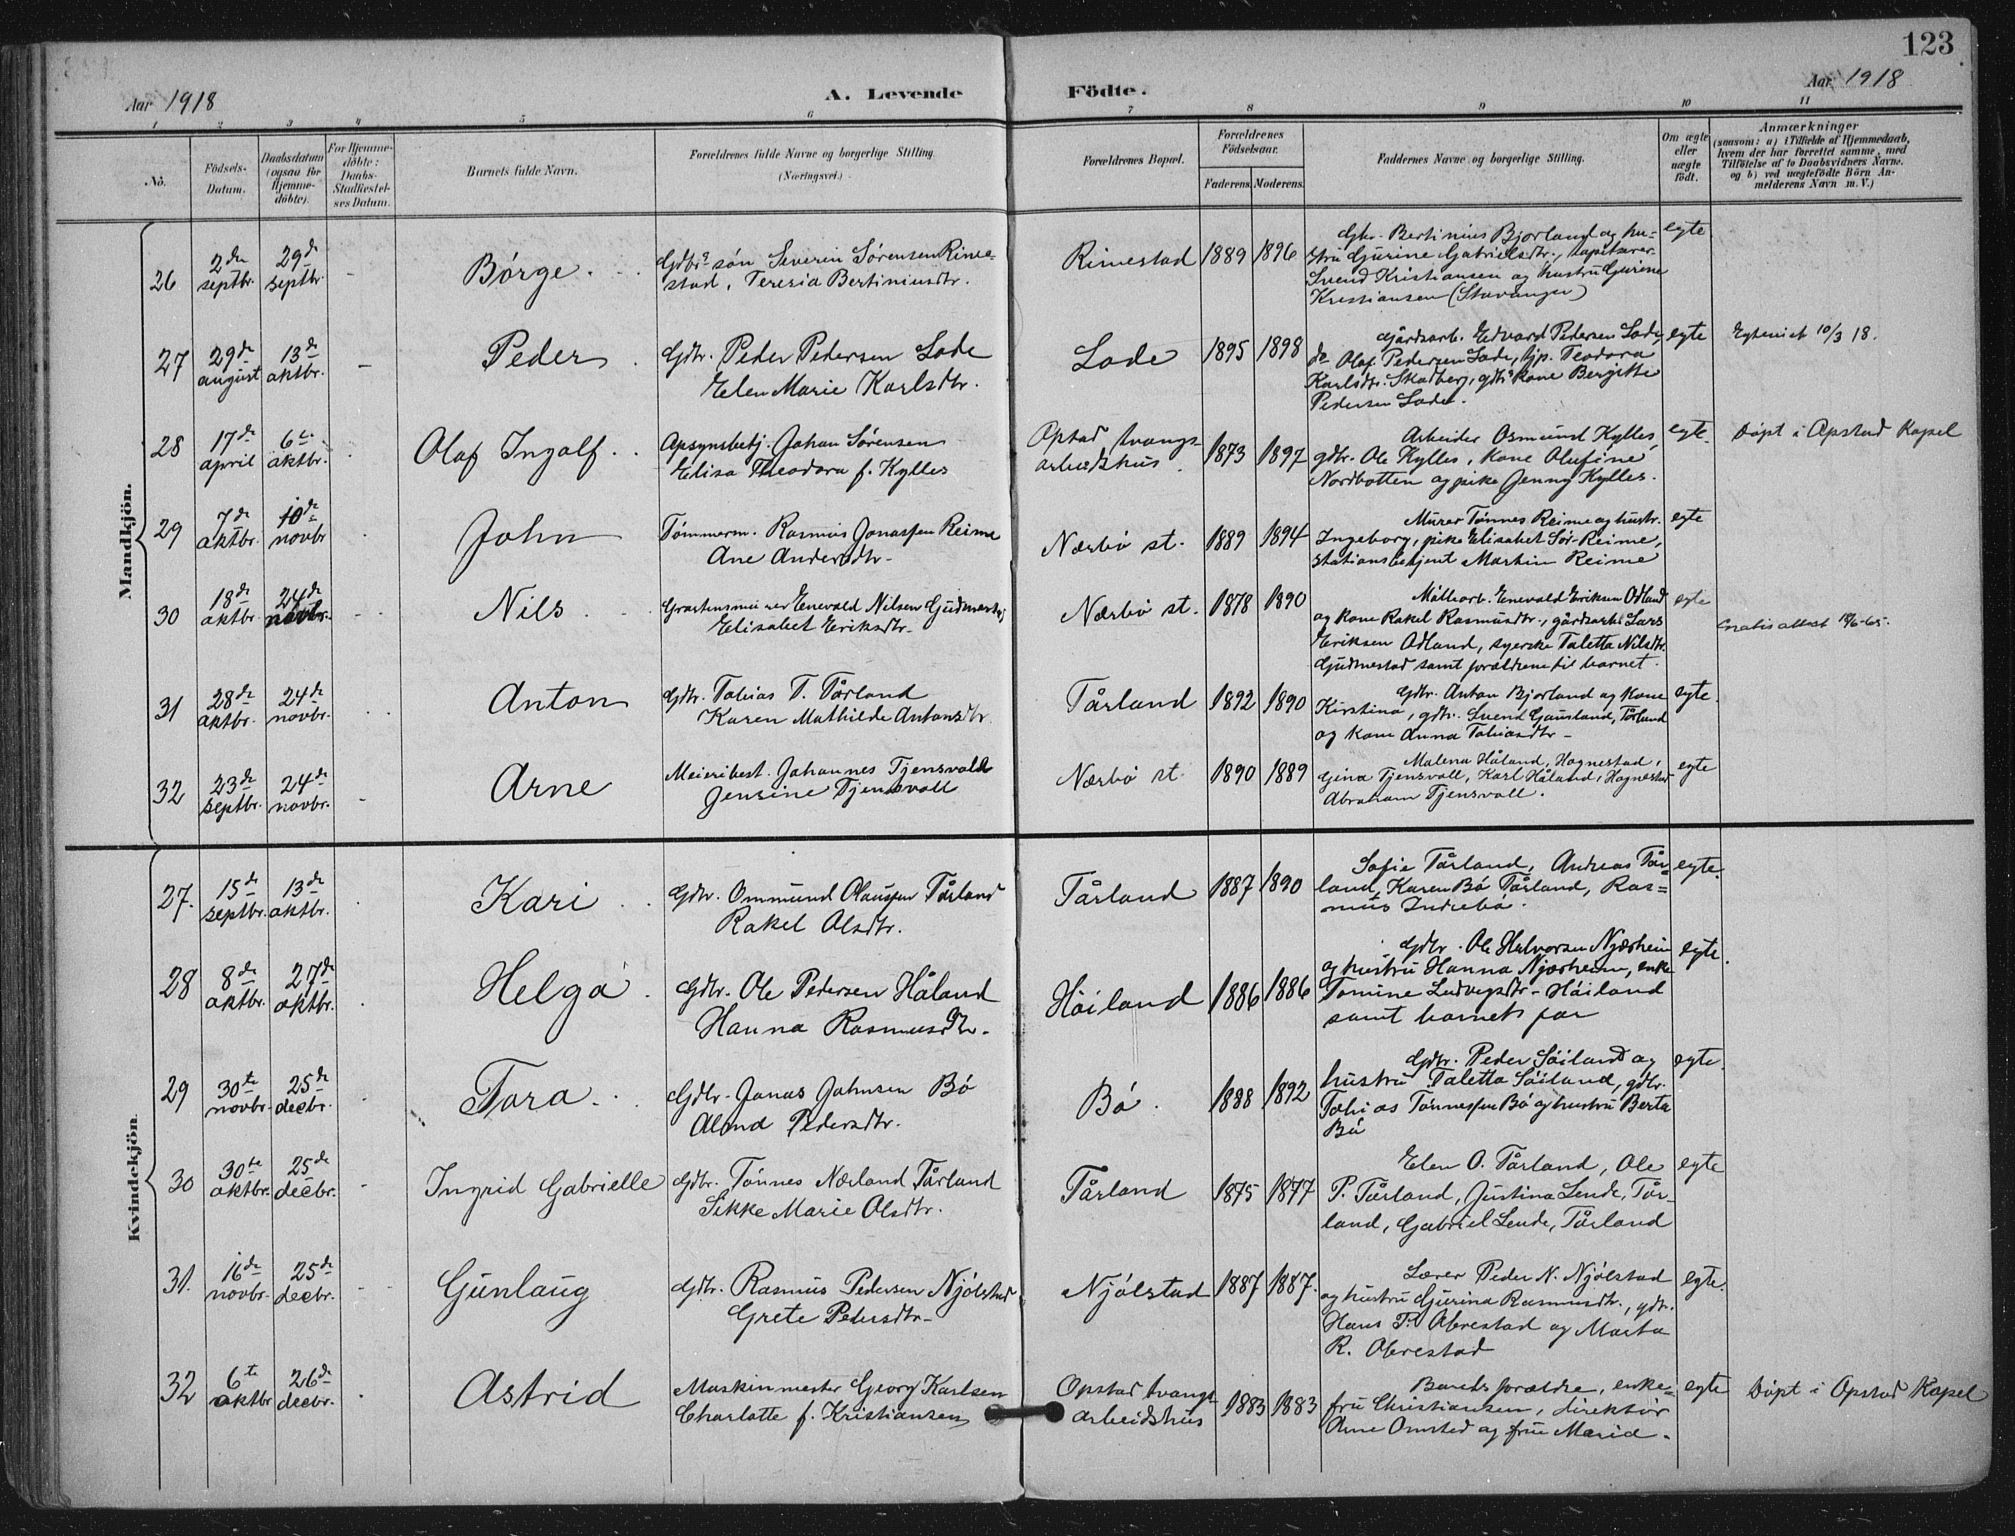 123
Aar 1918
A. Levende
Födte.
Aar 1918
1 2 3 4 5 6 7 8 9 10 11
No.
Födsels-Datum.
Daabsdatum (ogsaa for Hjemmedöbte).
For Hjemmedöbte: Daabs-Stadfæstelses Datum.
Barnets fulde Navn.
Forældrenes fulde Navne og borgerlige Stilling.
(Næringsvei.)
Forældrenes Bopæl.
Forældrenes Födselsaar.
Faderens. Moderens.
Faddernes Navne og borgerlige Stilling.
Om ægte eller uægte födt.
Anmærkninger
(saasom: a) i Tilfælde af Hjemmedaab, hvem der har forrettet samme, med Tilföielse af to Daabsvidners Navne. og b) ved uægtefödte Börn Anmelderens Navn m. V.)
Mandkjön.
26
2den septbr.
29de septbr.
Børge
Gdbrs søn Severin Sørensen Rime-
stad, Teresia Bertiniusdtr.
Rimestad 1889 1896
Gbr. Bertinius Bjorland og hu-
stru Gurine Gabrielsdtr.,
Svend Kristiansen og hustru Gurine
Kristiansen (Stavanger)
egte
27
29de august
13de oktbr.
Peder
Gdbr. Peder Pedersen Lode
Elen Marie Karlsdtr.
Lode 1895 1898
Gårdsarb. Edvard Pedersen Lode,
do Olaf Pedersen Lode, tjp. Teodora
Karlsdtr. Skadberg, gdbrs kone Bergitte
Pedersen Lode.
egte
Egteviet 10/3 18.
28
17de april
6te oktbr.
Olaf Ingolf
Opsynsbetj. Johan Sørensen
Elisa Theodora f. Kylles
Opstad tvangs-
arbeidshus
1873 1897
Arbeider Osmund Kylles,
gdbr. Ole Kylles, kone Olufine
Nordbotten og pike Jenny Kylles.
egte
Døpt i Opstad Kapel
29
7de oktbr.
10de novbr
John
Tømmerm. Rasmus Jonassen Reime
Ane Andersdtr.
Nærbø st. 1889 1894
Murer Tønnes Reime og hustr.
Ingeborg, pike Elisabet Sør-Reime,
stationsbetjent Martin Reime
egte
30
18de oktbr.
24de novbr.
Nils
Gråstensmurer Enevald Nilsen Gudmestad
Elisabet Eriksdtr.
Nærbø st. 1878 1890
Møllearb. Enevald Eriksen Odland
og kone Rakel Rasmusdtr., gårdsarb. Lars
Eriksen Odland, syerske Taletta Nilsdtr.
Gudmestad samt forældrene til barnet.
egte
Gratis attest 18/6-65.
31
28de oktbr.
24de novbr.
Anton
Gdbr. Tobias T. Tårland
Karen Mathilde Antonsdtr.
Tårland 1892 1890
Gdbr. Anton Bjorland og kone
Kirstina, gdbr. Svend Gausland, Tårland
og kone Anna Tobiasdtr.
egte
32
23de septbr.
24de novbr.
Arne
Meieribest. Johannes Tjensvold
Jensine Tjensvoll
Nærbø st. 1890 1889
Malena Håland, Hognestad,
Gina Tjensvoll, Karl Håland, Hognestad
Abraham Tjensvoll.
egte
Kvindekjön.
27.
15de septbr.
13de oktbr.
Kari
Gdbr. Ommund Olaussen Tårland
Rakel Olsdtr.
Tårland 1887 1890
Sofie Tårland, Andreas Tår-
land, Karen Bø Tårland, Ras-
mus Indrebø.
egte.
28
8de oktbr.
27de oktbr.
Helga
Gdbr. Ole Pedersen Håland
Hanna Rasmusdtr.
Höiland 1886 1886
Gdbr. Ole Halvorsen Njærheim
og hustru Hanna Njærheim, enke
Tomine Ludvigsdtr. Höiland
samt barnets far
egte.
29
30te novbr.
25de decbr.
Tora
Gdbr. Jonas Johnsen Bø
Alond Pedersdtr.
Bø 1888 1892
Gdbr. Peder Söiland og
hustru Taletta Söiland, gdbr.
Tobias Tönnessen Bø og hustru Berta
Bø
egte.
30
30te oktbr.
25de decbr.
Ingrid Gabrielle
Gdbr. Tønnes Nærland Tårland
Sikke Marie Olsdtr.
Tårland 1875 1877
Elen O. Tårland, Ole
P. Tårland, Justina Lende, Tår-
land, Gabriel Lende, Tårland
egte
31.
16de novbr.
25de decbr.
Gunlaug
Gdbr. Rasmus Pedersen Njölstad
Grete Pedersdtr.
Njölstad 1887 1887
Lærer Peder N. Njölstad
og hustru Gurina Rasmusdtr., gdbr.
Hans T. Obrestad og Marta
R. Obrestad
egte.
32
6te oktbr
26de decbr.
Astrid
Maskinmester Georg Karlsen
Charlotte f. Kristiansen
Opstad tvangs-
arbeidshus
1883 1883
Barnets forældre, enke-
fru Christiansen, direktör
Arne Omsted og frue Marie.
egte
Döpt i Opstad Kapel